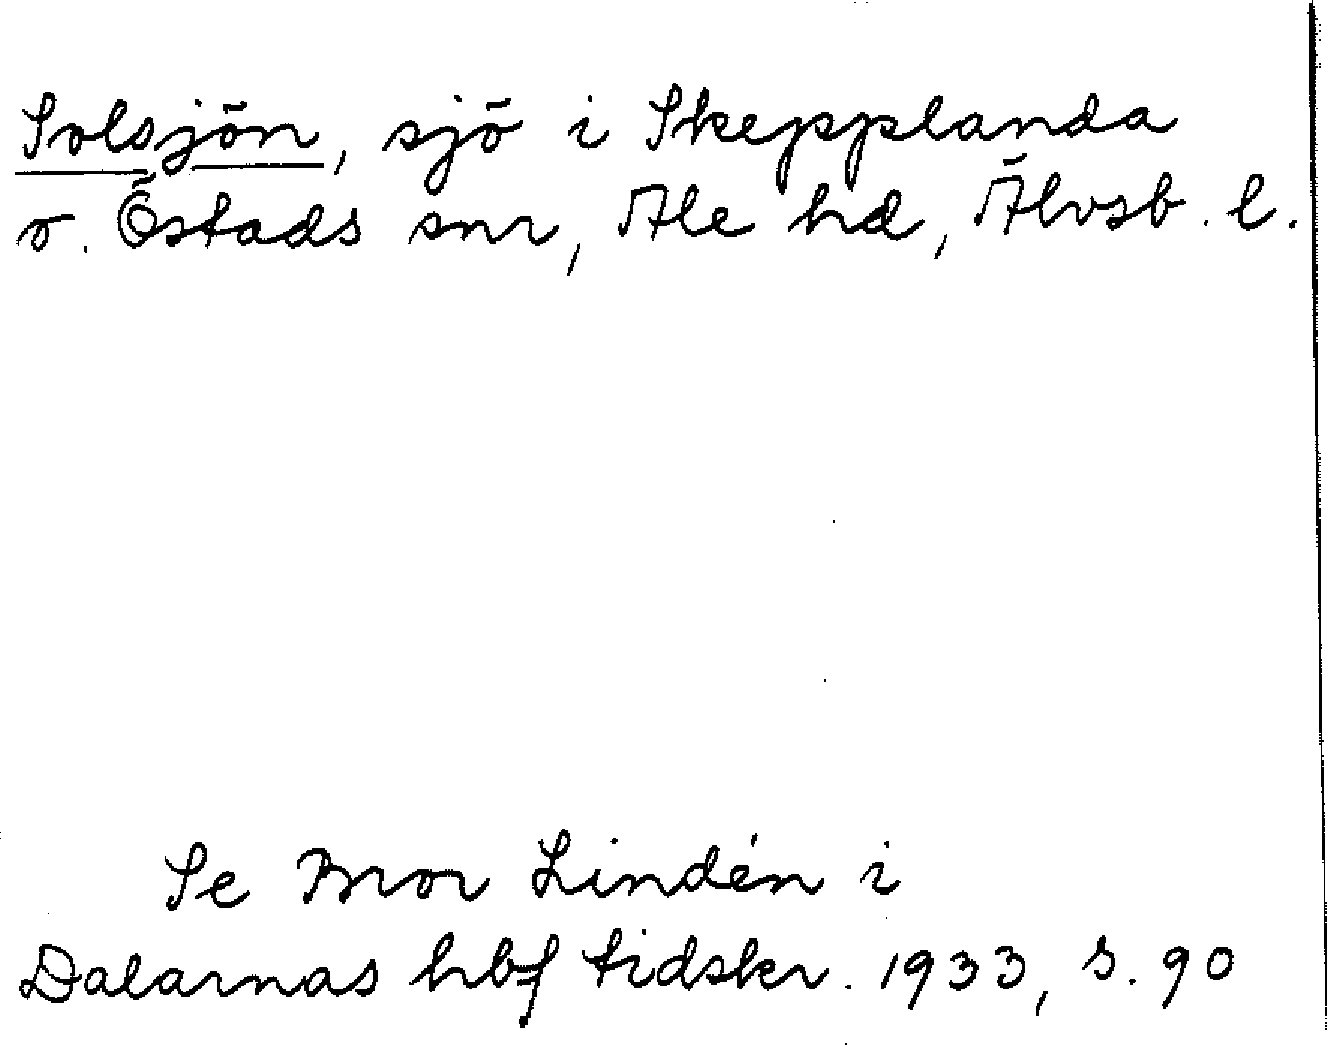 Solsjön, sjö i Skepplanda
o. Östads snr, Ale hd, Älvsb. l.
Se Bror Lindén i
Dalarnas hbf tidskr. 1933, s. 90